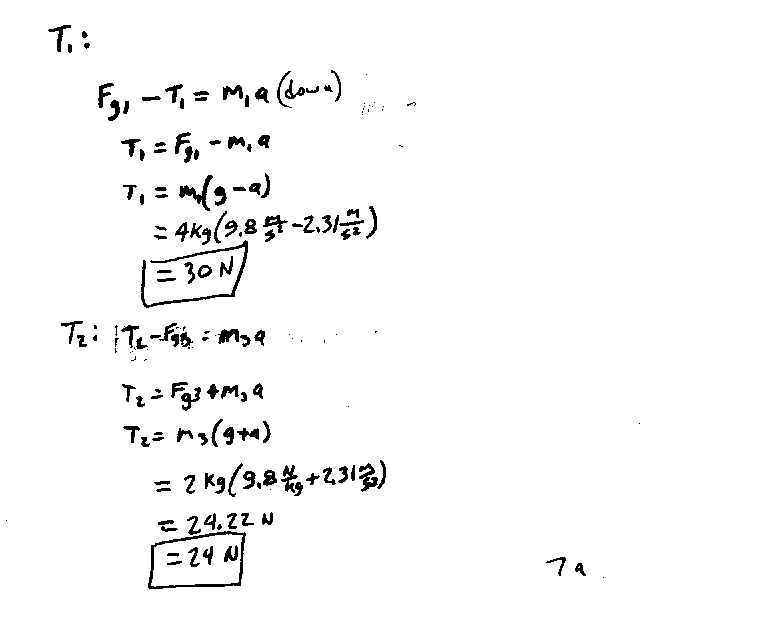 T₁:
Fg₁ − T₁ = m₁a (down)
T₁ = Fg₁ − m₁a
T₁ = m₁(g − a)
= 4kg(9.8 m/s² − 2.31 m/s²)
= 30 N
T₂: T₂ − Fg3 = m₃a
T₂ = Fg3 + m₃a
T₂ = m₃(g+a)
= 2 kg(9.8 N/kg + 2.31 m/s²)
= 24.22 N
= 24 N
7a